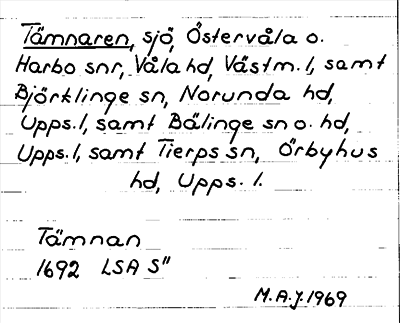 Tämnaren, sjö, Östervåla o.
Harbo snr, Våla hd, Västm. l, samt
Björklinge sn, Norunda hd,
Upps. l, samt Bälinge sn o. hd,
Upps. l, samt Tierps sn, Örbyhus
hd, Upps. l.
Tämnan
1692 LSA S"
M.A.J. 1969